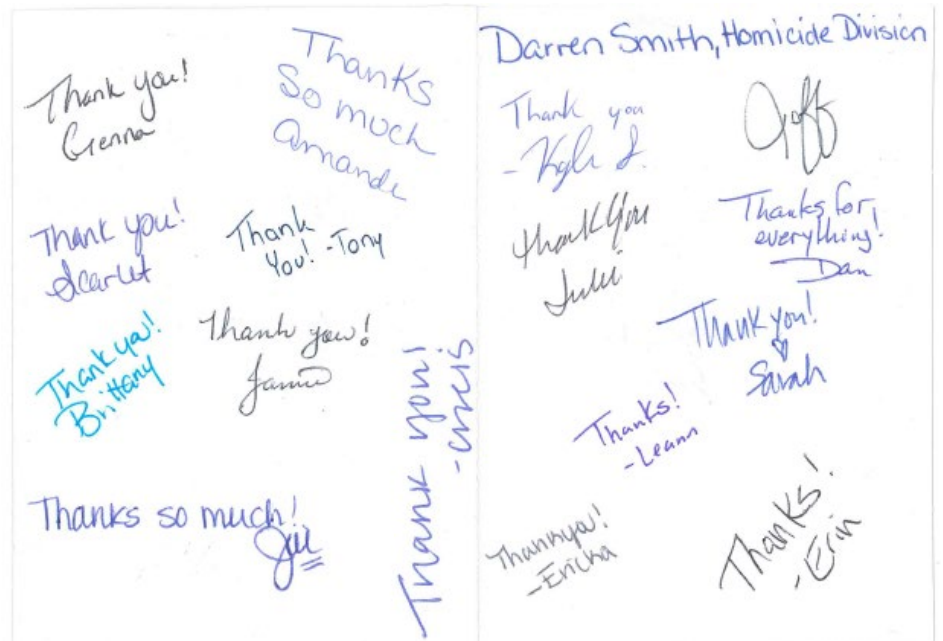 Thank you!
Gienna
Thanks
So much
Amanda
Thank you!
Scarlet
Thank
You! -Tony
Thank you!
Brittany
Thank you!
Jamie
Thank you!
-Chris
Thanks so much!
Jill
Darren Smith, Homicide Division
Thank you
-Kyle S.
Geoff
Thank You
Juli
Thanks for
everything!
Dan
Thank you!
Sarah
Thanks!
-Leann
Thank you!
-Ericka
Thanks!
-Erin